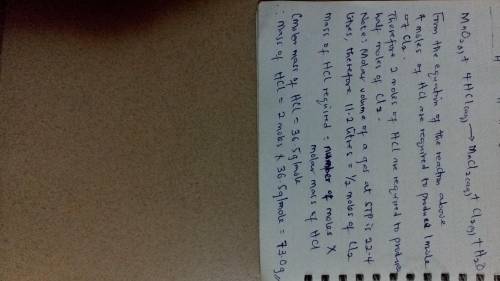 MnO2(s) + 4HCl(aq) → MnCl2(aq) + Cl2(g) + H2O
From the equation of the reaction above
4 moles of HCl are required to produce 1 mole
of Cl2.
Therefore 2 moles of HCl are required to produce
half moles of Cl2.
Note: Molar volume of a gas at STP is 22.4
litres, therefore 11.2 litres = 1/2 moles of Cl2
mass of HCl required = number of moles X
molar mass of HCl
(molar mass of HCl = 36.5g/mole
∴ mass of HCl = 2 moles X 36.5g/mole = 73.0g